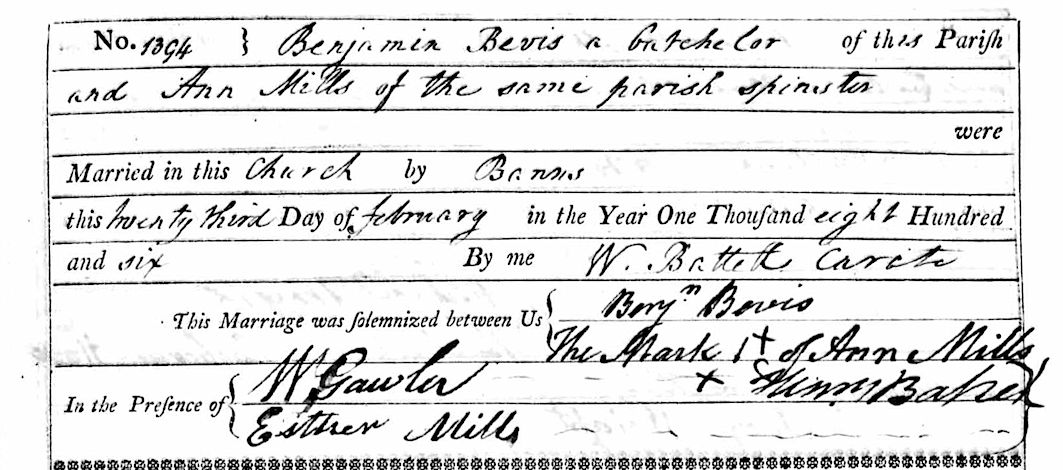 No. 1394 } Benjamin Bevis a batchelor of this Pariſh
and Ann Mills of the same parish spinster
were
Married in this Church by Banns
this twenty third Day of february in the Year One Thouſand eight Hundred
and six By me W. Battett Curate
This Marriage was ſolemnized between Us { Benjn Bevis
The Mark + of Ann Mills
In the Preſence of { W Gawler + Henry Baker
Esther Mills